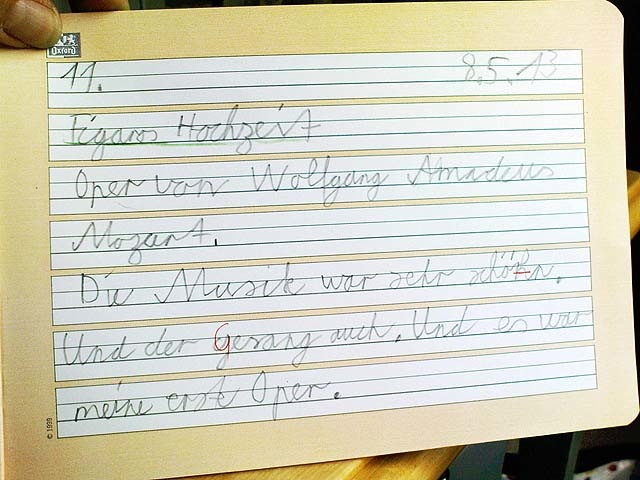 Oxford
11. 8.5.13
Figaros Hochzeit
Oper von Wolfgang Amadeus
Mozart.
Die Musik war sehr schön.
Und der Gesang auch. Und es war
meine erst Oper.
© 1999